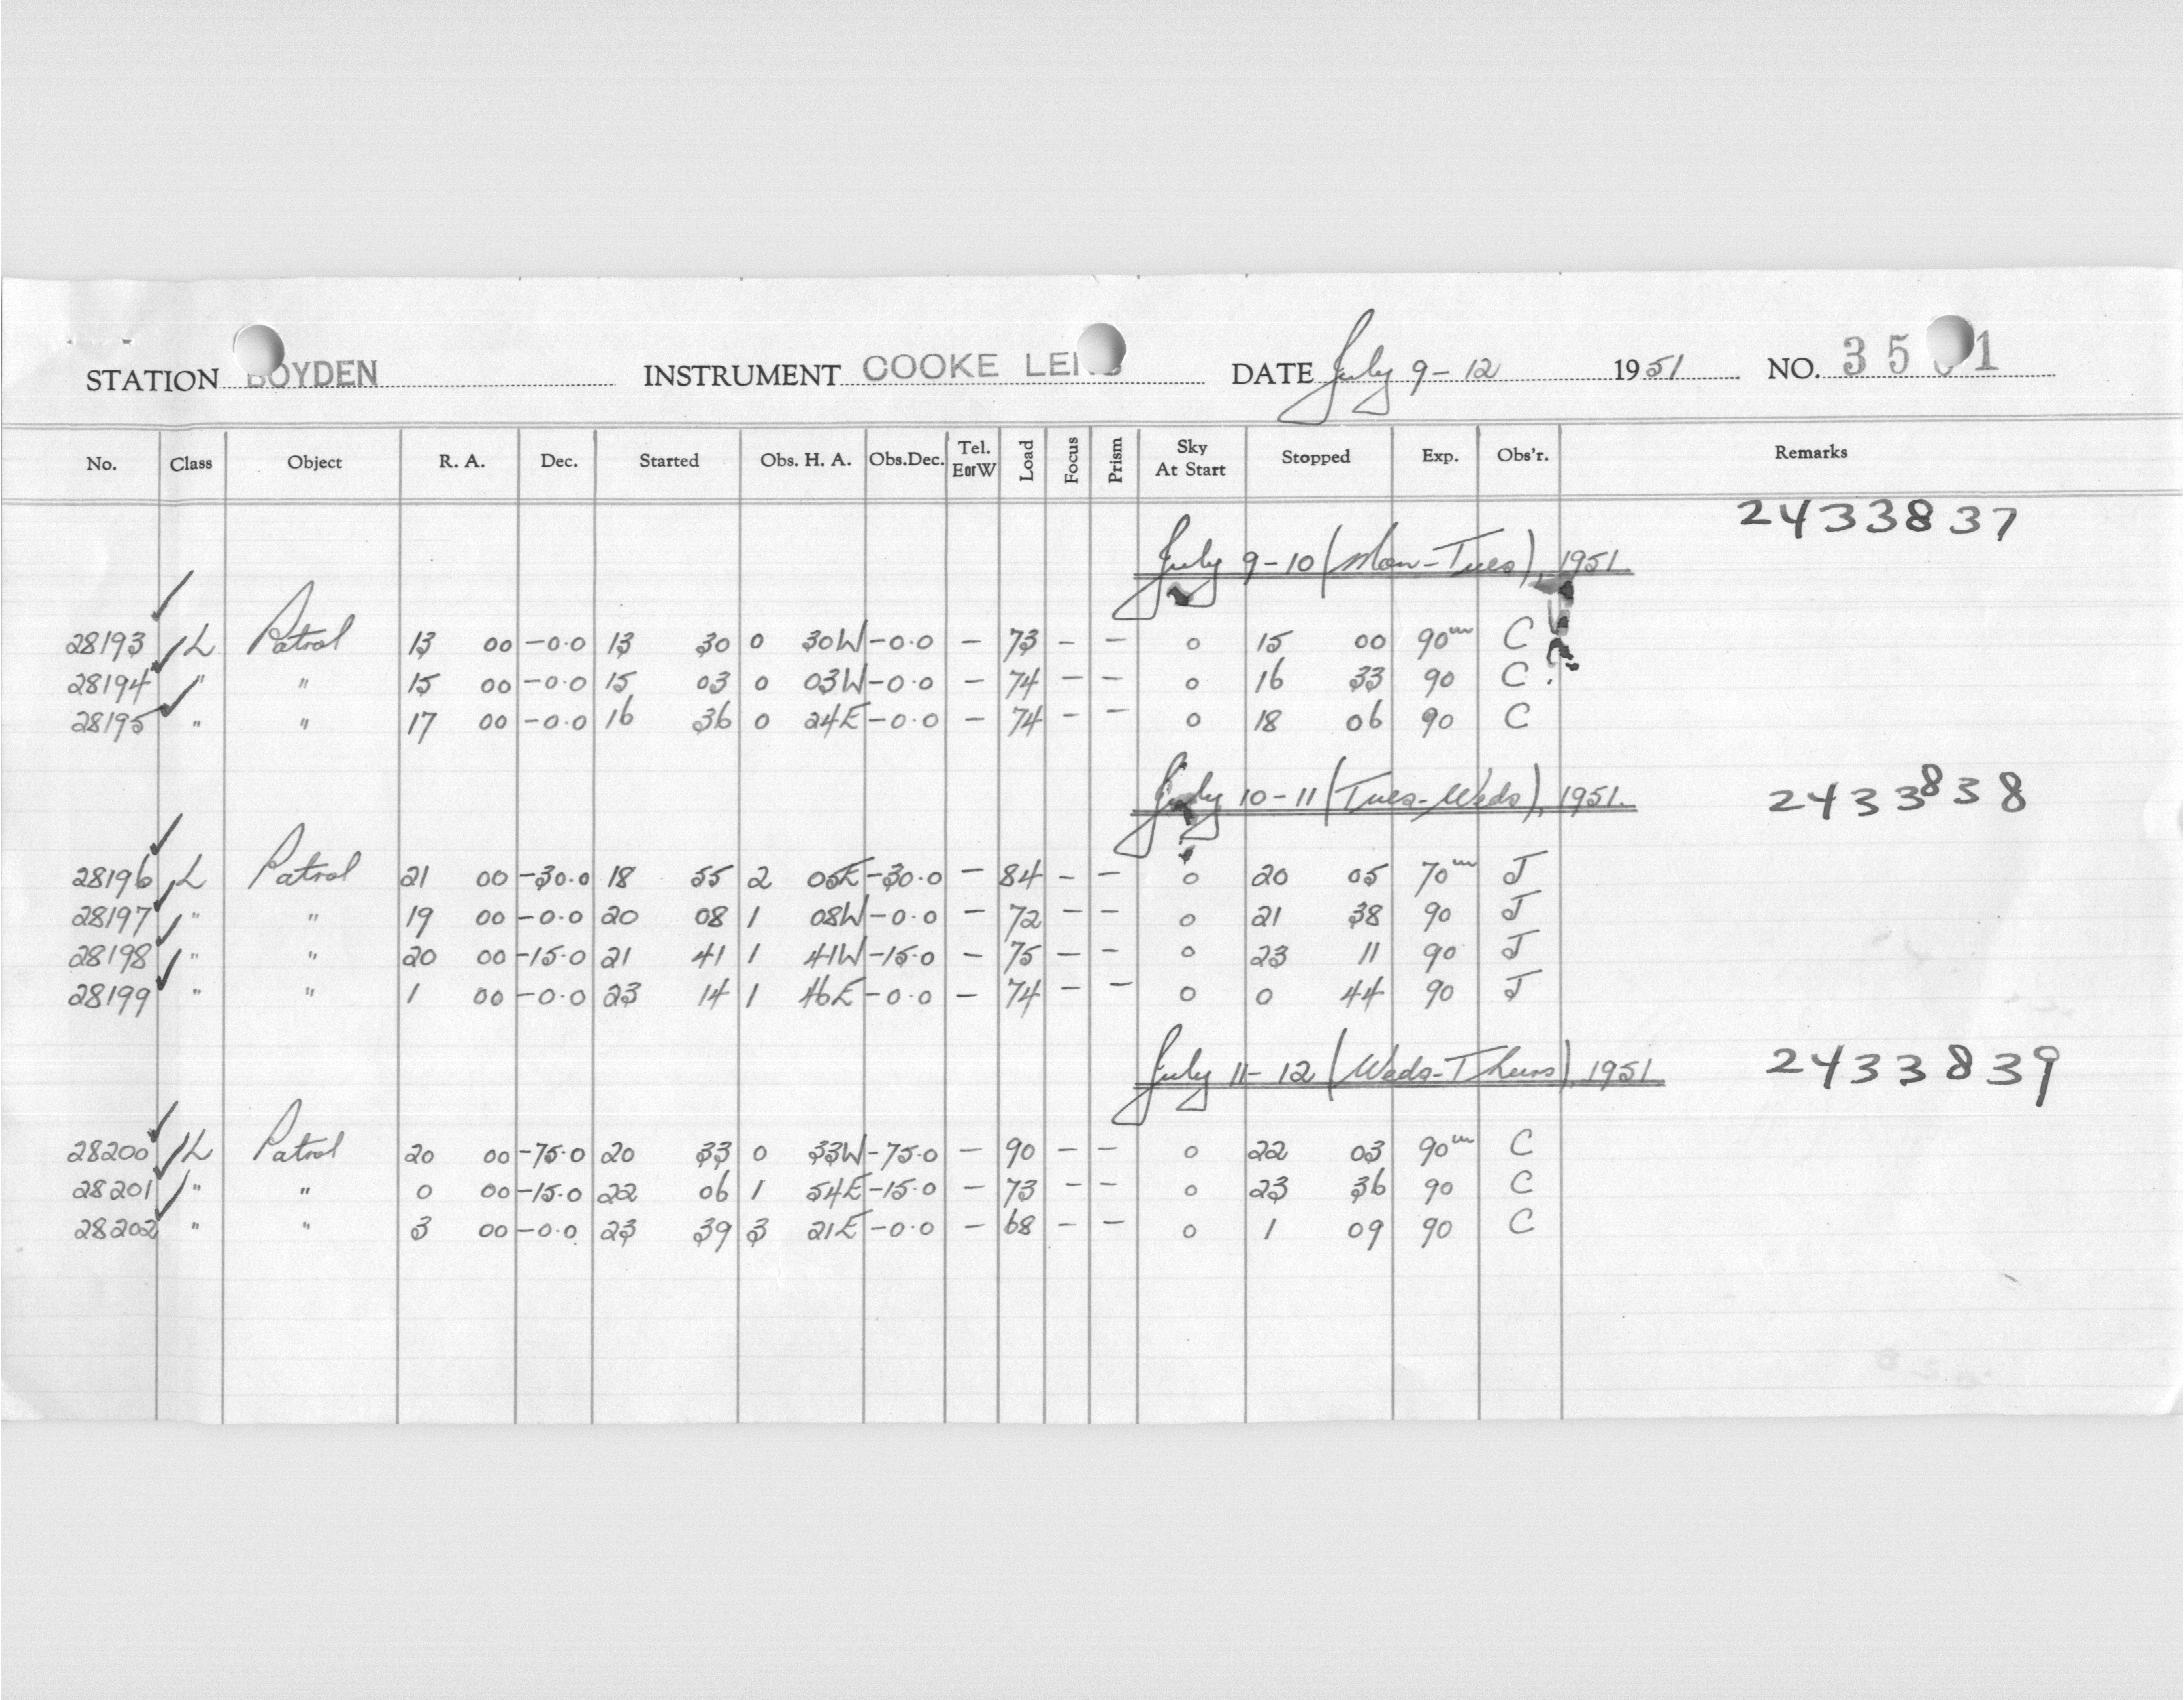 STATION BOYDEN INSTRUMENT COOKE LENS DATE July 9-12 1951 NO. 35 1
No. Class Object R. A. Dec. Started Obs. H. A. Obs.Dec. Tel. E or W Load Focus Prism Sky At Start Stopped Exp. Obs'r. Remarks
2433837
July 9-10 (Mon-Tues), 1951.
28193 ✓ L Patrol 13 00 -0.0 13 30 0 30W -0.0 - 73 - - 0 15 00 90m C
28194 ✓ " " 15 00 -0.0 15 03 0 03W -0.0 - 74 - - 0 16 33 90 C.
28195 ✓ " " 17 00 -0.0 16 36 0 24E -0.0 - 74 - - 0 18 06 90 C
July 10-11 (Tues-Weds), 1951. 2433838
28196 ✓ L Patrol 21 00 -30.0 18 55 2 05E -30.0 - 84 - - 0 20 05 70m J
28197 ✓ " " 19 00 -0.0 20 08 1 08W -0.0 - 72 - - 0 21 38 90 J
28198 ✓ " " 20 00 -15.0 21 41 1 41W -15.0 - 75 - - 0 23 11 90 J
28199 ✓ " " 1 00 -0.0 23 14 1 46E -0.0 - 74 - - 0 0 44 90 J
July 11-12 (Weds-Thurs), 1951 2433839
28200 ✓ L Patrol 20 00 -75.0 20 33 0 33W -75.0 - 90 - - 0 22 03 90m C
28201 ✓ " " 0 00 -15.0 22 06 1 54E -15.0 - 73 - - 0 23 36 90 C
28202 ✓ " " 3 00 -0.0 23 39 3 21E -0.0 - 68 - - 0 1 09 90 C